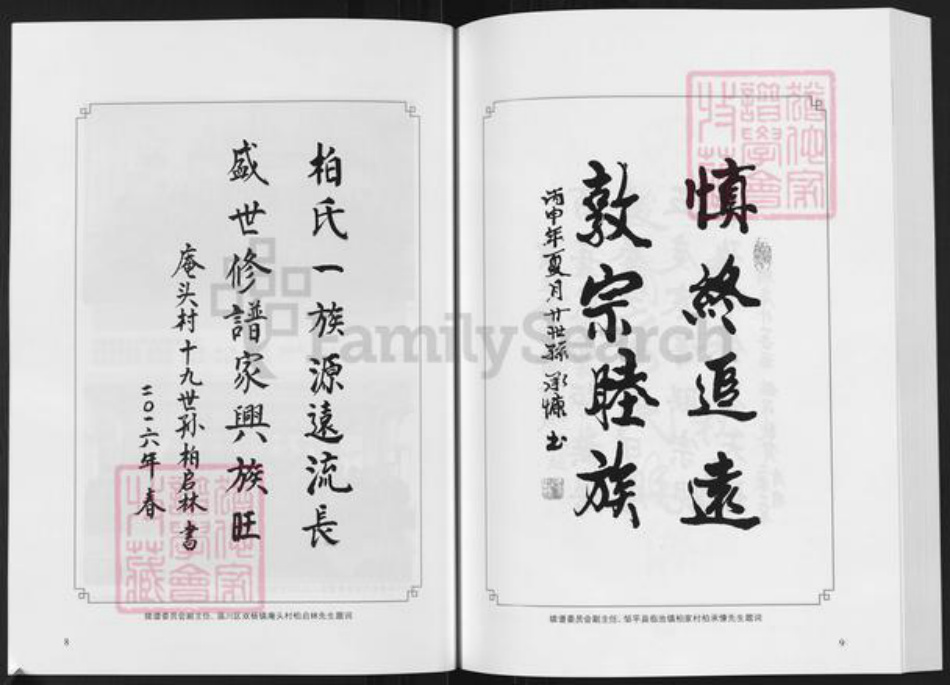 柏氏一族源遠流長
盛世修譜家興族旺
庵头村十九世孙柏启林書
二〇一六年春
续谱委员会副主任、淄川区双杨镇庵头村柏启林先生题词
8
慎終追遠
敦宗睦族
丙申年夏月廿世孫承慷书
续谱委员会副主任、邹平县临池镇柏家村柏承慷先生题词
9
FamilySearch
譜學會
收藏